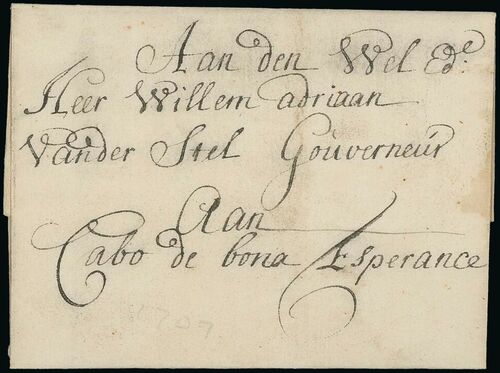 Aan den Wel Ede:
Heer Willem adriaan
Vander Stel Gouverneur
Aan
Cabo de bona Esperance
1707